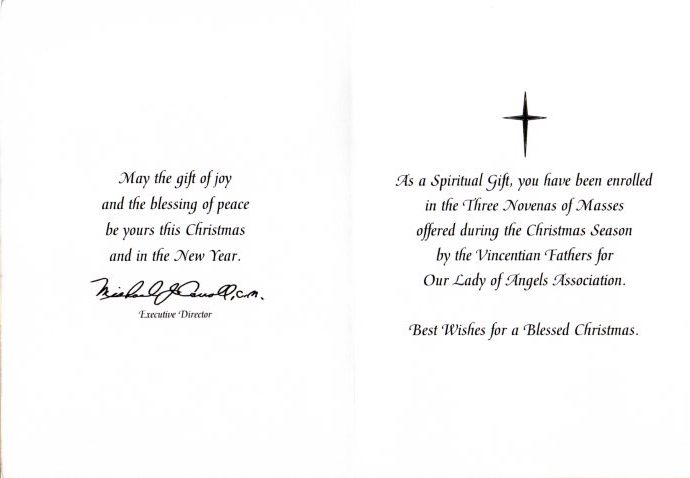 May the gift of joy
and the blessing of peace
be yours this Christmas
and in the New Year.
Michael J. Carroll, C.M.
Executive Director
As a Spiritual Gift, you have been enrolled
in the Three Novenas of Masses
offered during the Christmas Season
by the Vincentian Fathers for
Our Lady of Angels Association.
Best Wishes for a Blessed Christmas.